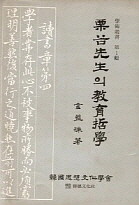 學術叢書 第1輯
栗谷先生의 敎育哲學
金益洙 著
讀書章第四
學者常存此心不被事物所勝而必須窮
理明善然後當行之道曉然在前
韓國思想文化學會